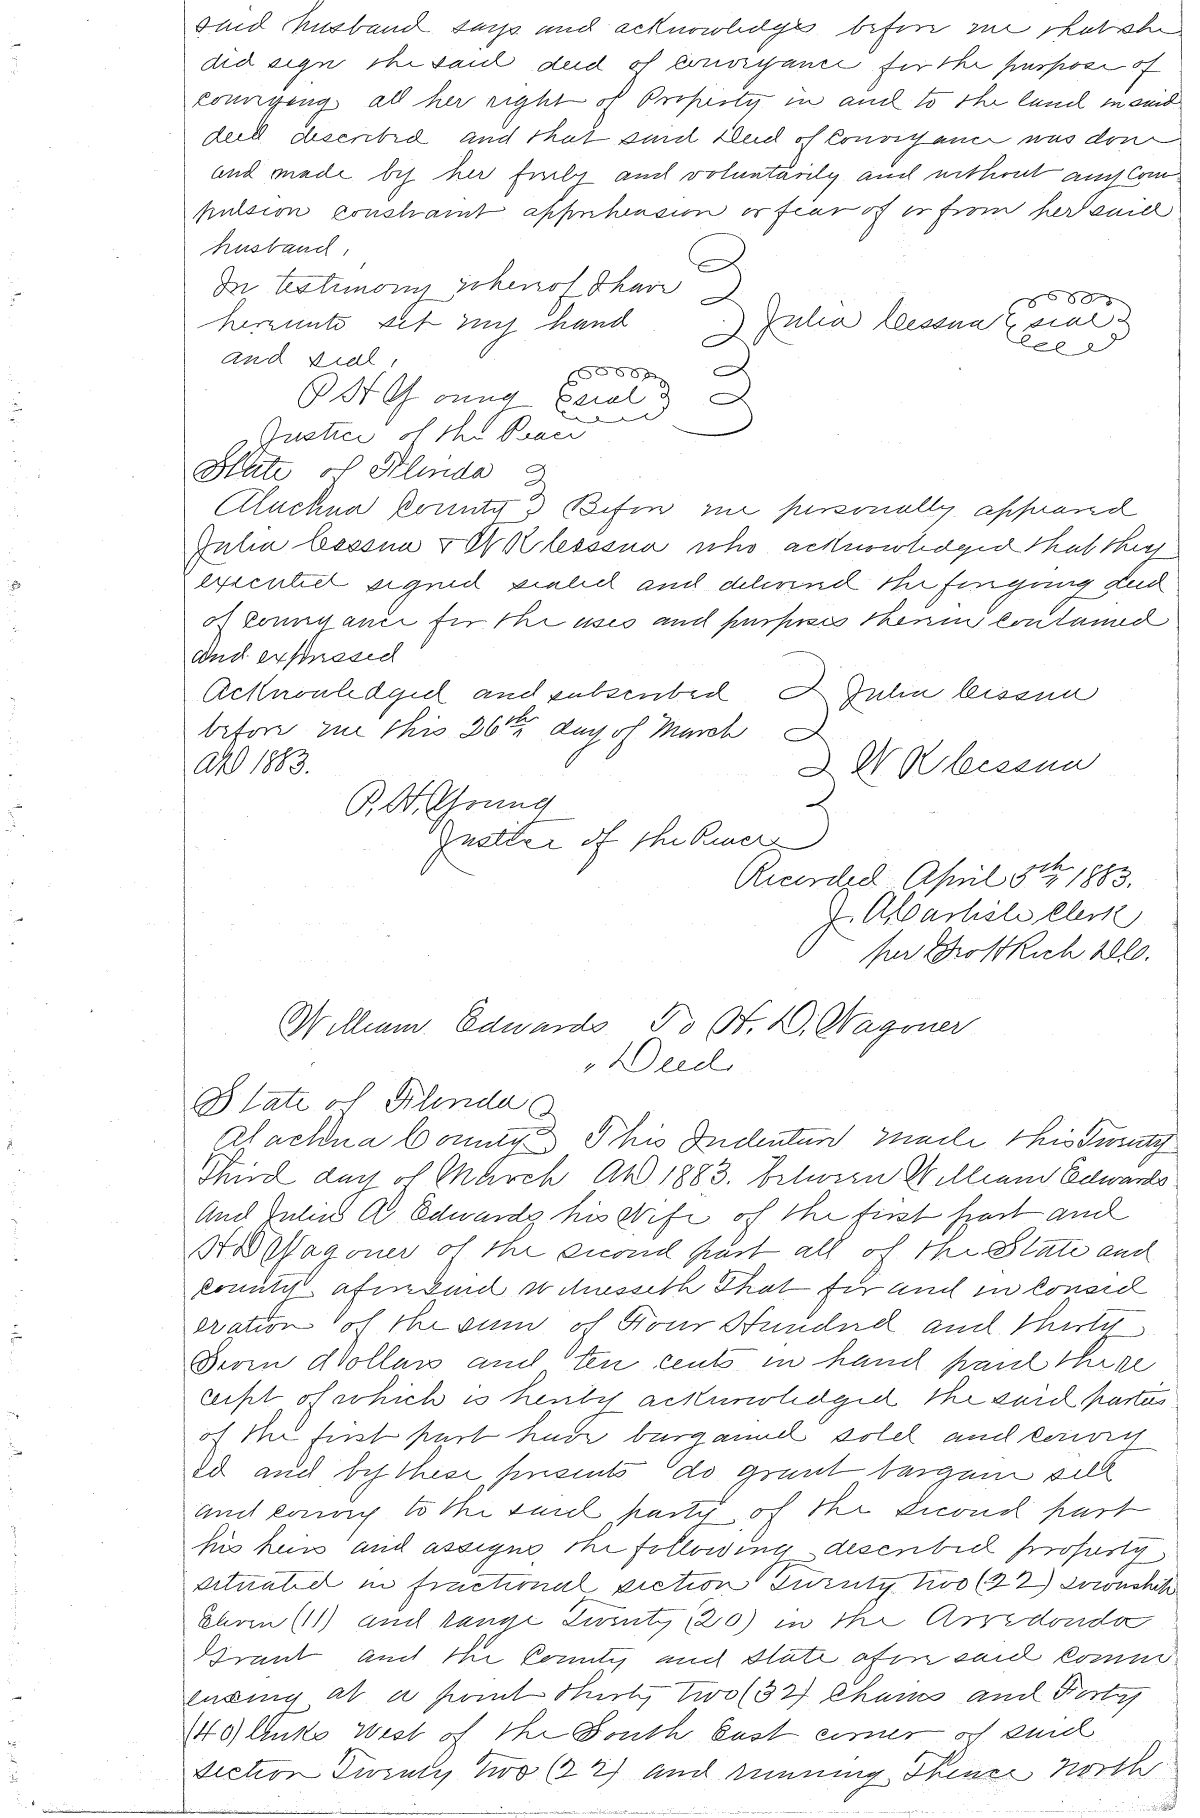 said husband says and acknowledges before me that she
did sign the said deed of conveyance for the purpose of
conveying all her right of Property in and to the land in said
deed described and that said Deed of Conveyance was done
and made by her freely and voluntarily and without any Com
pulsion constraint apprehension or fear of or from her said
husband.
In testimony whereof I have
hereunto set my hand Julia Cessna seal
and seal,
P H Young seal
Justice of the Peace
State of Florida
Alachua County Before me personally appeared
Julia Cessna & W R Cessna who acknowledged that they
executed signed sealed and delivered the foregoing deed
of conveyance for the uses and purposes therein contained
and expressed
Acknowledged and subscribed Julia Cessna
before me this 26th day of March
AD 1883. W R Cessna
P. H. Young
Justice of the Peace
Recorded April 5th 1883.
J. A. Carlisle Clerk
per Rich D.C.
William Edwards To H. D. Wagoner
"Deed
State of Florida
Alachua County This Indenture made this Twenty
Third day of March AD 1883. between William Edwards
And Julia A Edwards his Wife of the first part and
H D Wagoner of the second part all of the State and
county aforesaid witnesseth That for and in Consid
eration of the sum of Four Hundred and thirty
Seven dollars and ten cents in hand paid the re
ceipt of which is hereby acknowledged the said parties
of the first part have bargained sold and convey
ed and by these presents do grant bargain sell
and convey to the said party of the second part
his heirs and assigns the following described property
situated in fractional section Twenty two (22) township
Eleven (11) and range Twenty (20) in the Arredondo
Grant and the County and State afore said comm
encing at a point thirty two (32) Chains and Forty
(40) links West of the South East corner of said
section Twenty two (22) and running Thence North